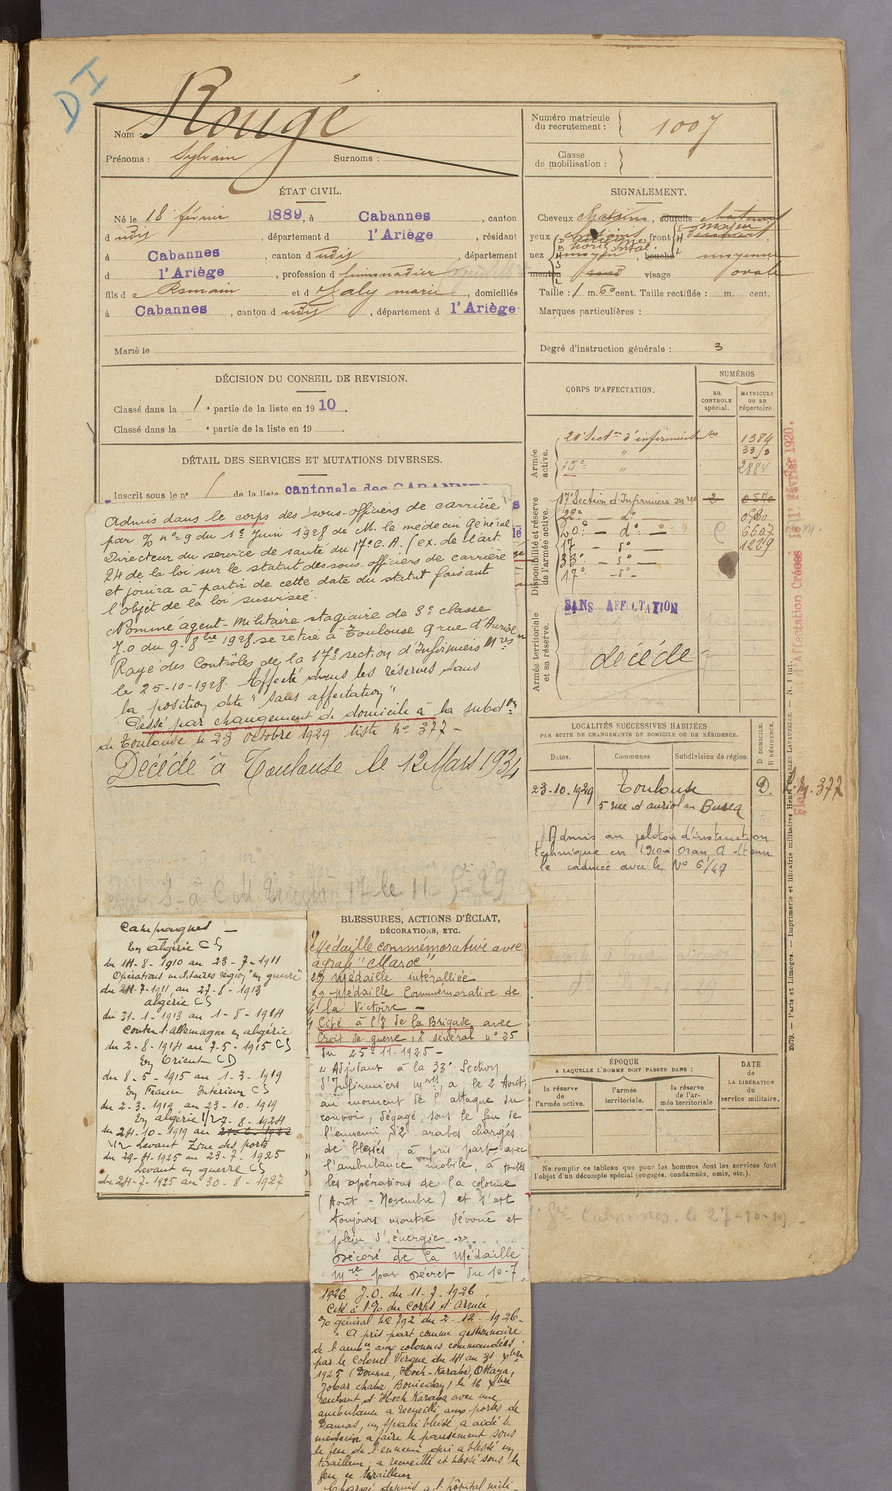 DI
Nom : Rougé
Prénoms : Sylvain Surnoms :
Numéro matricule du recrutement : 1007
Classe de mobilisation :
ÉTAT CIVIL.
Né le 18 février 1889, à Cabannes, canton
d udit, département d l'Ariège, résidant
à Cabannes, canton d udit, département
d l'Ariège, profession d limonadier
fils d e Romain et d Galy marie, domiciliés
à Cabannes, canton d udit, département d l'Ariège
Marié le
SIGNALEMENT.
Cheveux chatains, sourcils chatains
yeux front
nez moyen, bouche moyenne
menton rond visage ovale
Taille : 1 m. 60 cent. Taille rectifiée : m. cent.
Marques particulières :
Degré d'instruction générale : 3
DÉCISION DU CONSEIL DE REVISION.
Classé dans la 1 e partie de la liste en 1910.
Classé dans la e partie de la liste en 19
DÉTAIL DES SERVICES ET MUTATIONS DIVERSES.
Inscrit sous le n° 1 de la liste cantonale des CABANNES
Admis dans le corps des sous-officiers de carrière
par % n° 9 du 1er Juin 1928 de M. le médecin Général
Directeur du service de santé du 17e C.A. (ex. de l'art.
24 de la loi sur le statut des sous-officiers de carrière
et jouira à partir de cette date du statut faisant
l'objet de la loi susvisée.
Nommé agent-militaire stagiaire de 3e classe
J.O du 9-8bre 1928 se retire à Toulouse 9 rue d'Auriol
Rayé des Contrôles de la 17e section d'Infirmiers Mres
le 25-10-1928. Affecté dans les réserves dans
la position dite "Sans affectation"
Passé par changement de domicile à la subdon
de Toulouse le 23 octobre 1929 liste n° 377 -
Décédé à Toulouse le 12 Mars 1934
CORPS D'AFFECTATION.
NUMÉROS
au contrôle spécial.
matricule ou au répertoire.
Armée active.
20e Secton d'infirmiers 1384
" 33/3
15e " 2884
Disponibilité et réserve de l'armée active.
17e Section d'Infirmiers mres 2
22e - do -
20e - do - 6607
17 - do - 1229
33e - do -
17e - do -
Armée territoriale et sa réserve.
SANS AFFECTATION
décédé
LOCALITÉS SUCCESSIVES HABITÉES
PAR SUITE DE CHANGEMENTS DE DOMICILE OU DE RÉSIDENCE.
Dates. Communes Subdivision de région D DOMICILE. R RÉSIDENCE.
23-10-1929 Toulouse D. L.n. 377
5 rue d'auriol
Admis au peloton d'instruction
technique en 1910 à Oran A obtenu
le caducée avec le N° 6/49
Campagnes -
En algérie CS
du 11-8-1910 au 23-7-1911
Opérations militaires région "en guerre"
du 24-7-1911 au 27-8-1913
algérie CS
du 31-1-1913 au 1-8-1914
Contre l'allemagne en algérie
du 2-8-1914 au 7-5-1915 CS
En Orient CD
du 8-5-1915 au 1-3-1919
En France Intérieur CS
du 2-3-1919 au 23-10-1919
En algérie 1/2 2-8-1924
du 24-10-1919 au
1/2 Levant Zone des ports
du 29-4-1925 au 23-7-1925
Levant en guerre CS
du 24-7-1925 au 30-8-1927
BLESSURES, ACTIONS D'ÉCLAT,
DÉCORATIONS, ETC.
1° Médaille commémorative avec
agrafe "Maroc"
2° Médaille interalliée
3° - Médaille Commémorative de
la Victoire -
Cité à l'% de la Brigade avec
Croix de guerre, % général n° 35
du 25-11-1925 -
"Adjudant à la 33e Section
d'Infirmiers Mres, a, le 2 Août,
au moment de l'attaque du
convoi, dégagé, sous le feu de
l'ennemi, 2 arabas chargés
de blessés, a pris part avec
l'ambulance mobile, à toutes
les opérations de la colonne
(Août - Novembre) et s'est
toujours montré dévoué et
plein d'énergie".
Décoré de la Médaille
Mre par décret du 10-7.
1926 J.O. du 11-7-1926.
Cité à l'% du Corps d'Armée
% général N° 792 du 2-12-1926-
"A pris part comme gestionnaire
de l'ambce aux colonnes commandées
par le Colonel Vergne du 14 au 31 Xbre
1925 (Douma, Hoch-Karaba, Ottaya,
Jobar) le 16 Xbre
rentrant d'Hoch Karaba avec une
ambulance a recueilli aux portes de
Damas, un Spahi blessé, a aidé le
médecin à faire le pansement sous
le feu de l'ennemi qui a blessé un
tirailleur ; a recueilli et pansé sous le
feu ce tirailleur
Chargé depuis à l'hôpital mili-
ÉPOQUE
A LAQUELLE L'HOMME DOIT PASSER DANS :
la réserve de l'armée active.
l'armée territoriale.
la réserve de l'armée territoriale
DATE DE LA LIBÉRATION du service militaire.
Ne remplir ce tableau que pour les hommes dont les services font
l'objet d'un décompte spécial (engagés, condamnés, omis, etc.).
2079. — Paris et Limoges. — Imprimerie et librairie militaires Henri Charles-Lavauzelle. — N. 1 int.